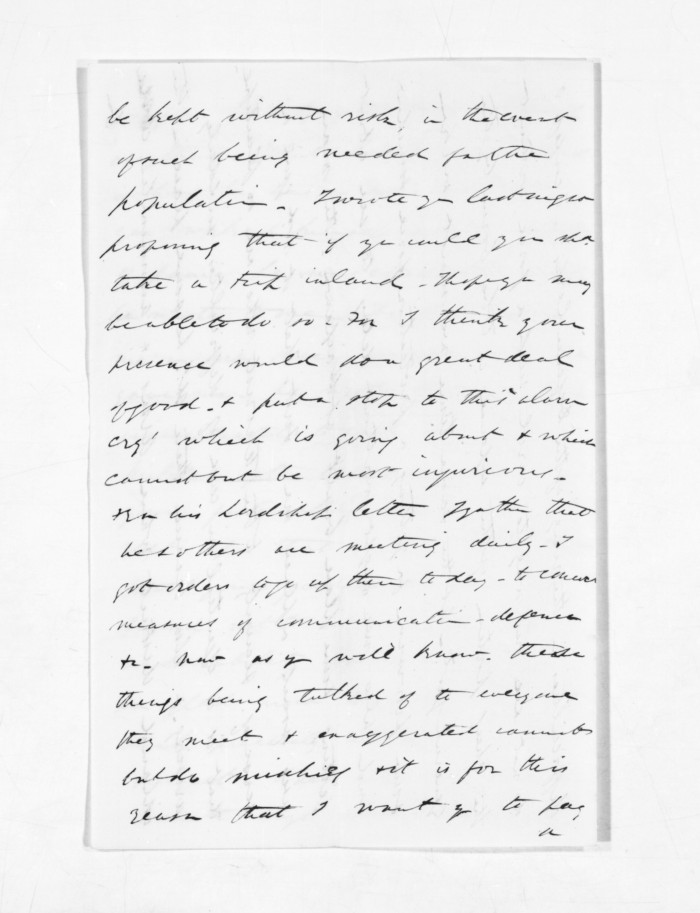 be kept without risk, in the event
of such being needed for the
population - I wrote yr last night
proposing that if you could you shd
take a trip inland - I hope you may
be able to do so - for I think your
presence would do a great deal
of good - & put a stop to this "alarm
cry" which is going about & which
cannot but be most injurious -
his Lordship letter I gather that
he & others are meeting daily - I
got orders to go up there today - to concert
measures of communication - defence
&c - now as you well know - these
things being talked of to everyone
they meet & exaggerated cannot
but do mischief & it is for this
reason that I want you to pay
a